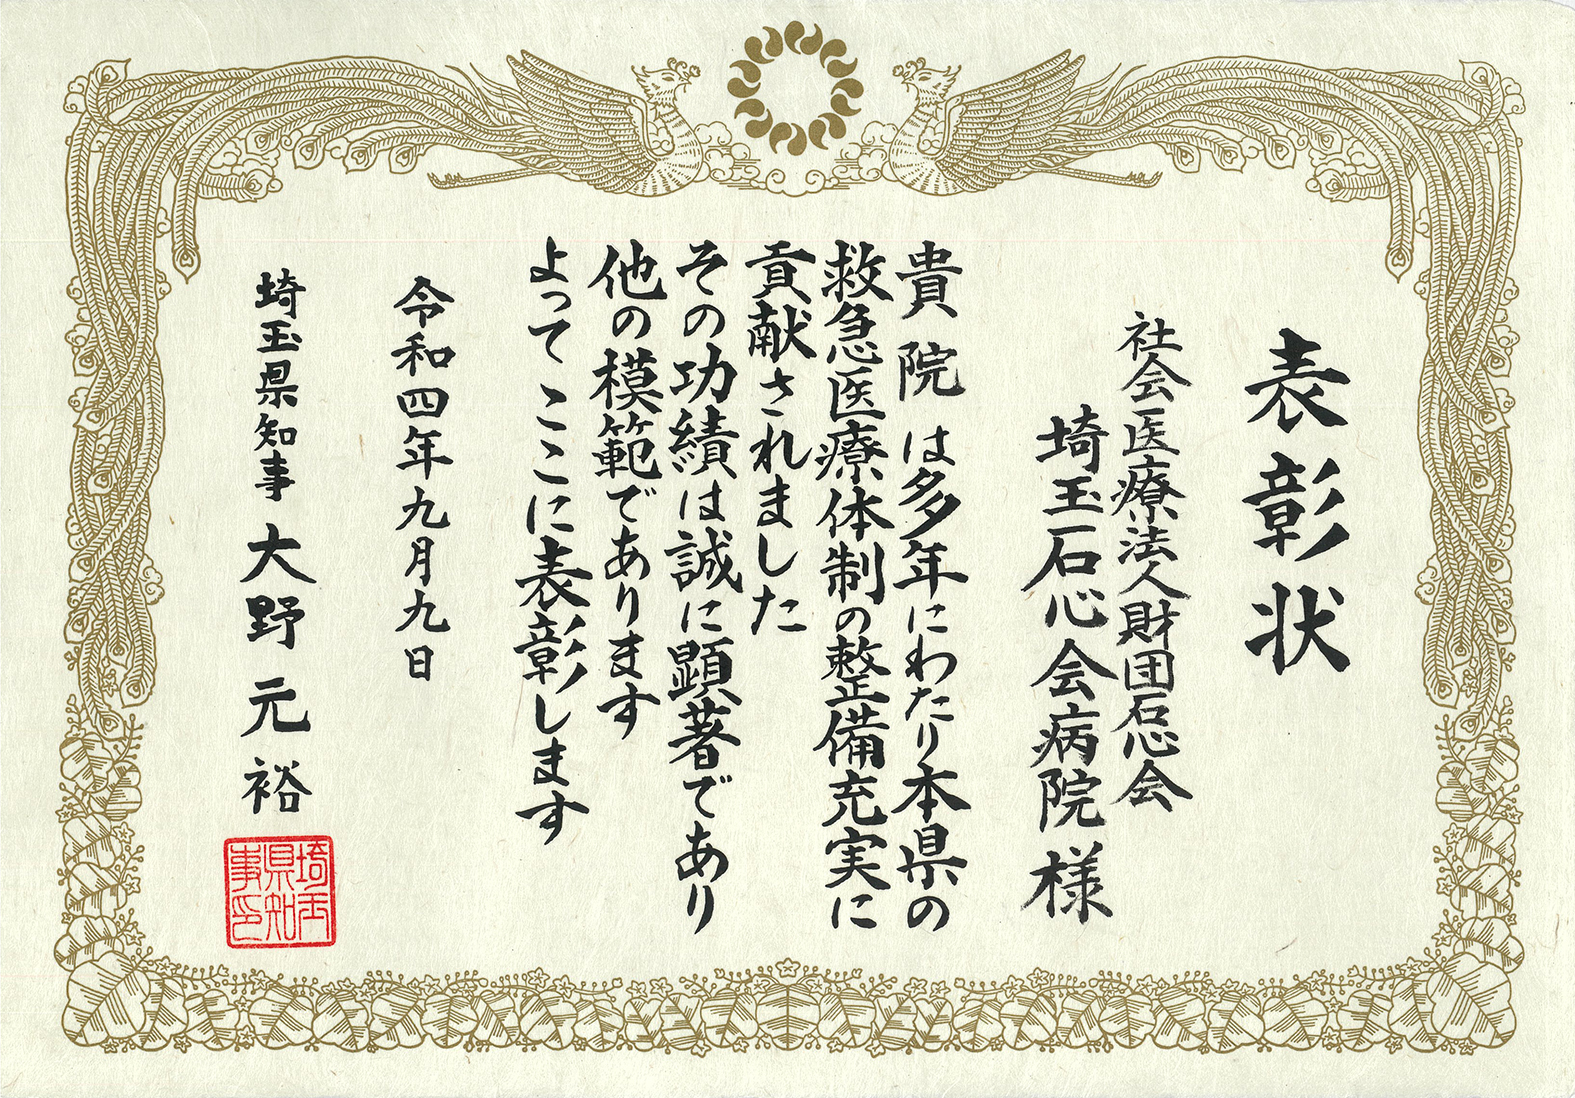 表彰状
社会医療法人財団石心会
埼玉石心会病院様
貴院は多年にわたり本県の
救急医療体制の整備充実に
貢献されました
その功績は誠に顕著であり
他の模範であります
よってここに表彰します
令和四年九月九日
埼玉県知事 大野元裕
埼玉
県知
事印